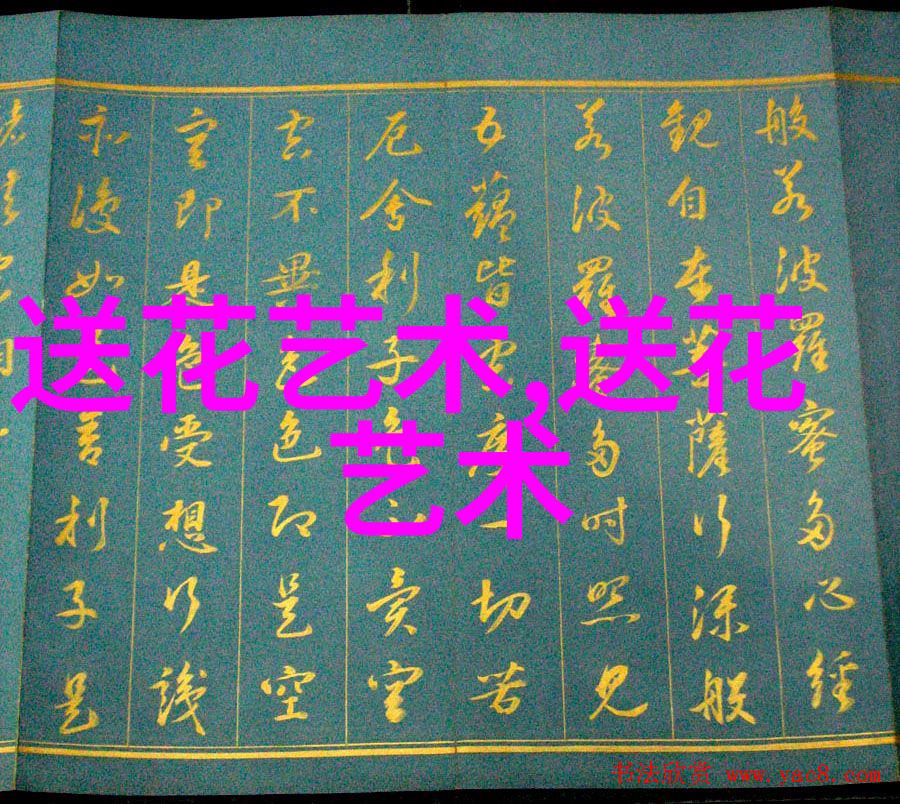 般若波羅蜜多心經
觀自在菩薩行深般
若波羅蜜多時照見
五蘊皆空度一切苦
厄舍利子色不異空
空不異色色即是空
空即是色受想行識
亦復如是舍利子是
送花艺术,送花
艺术
书法欣赏 www.yac8.com